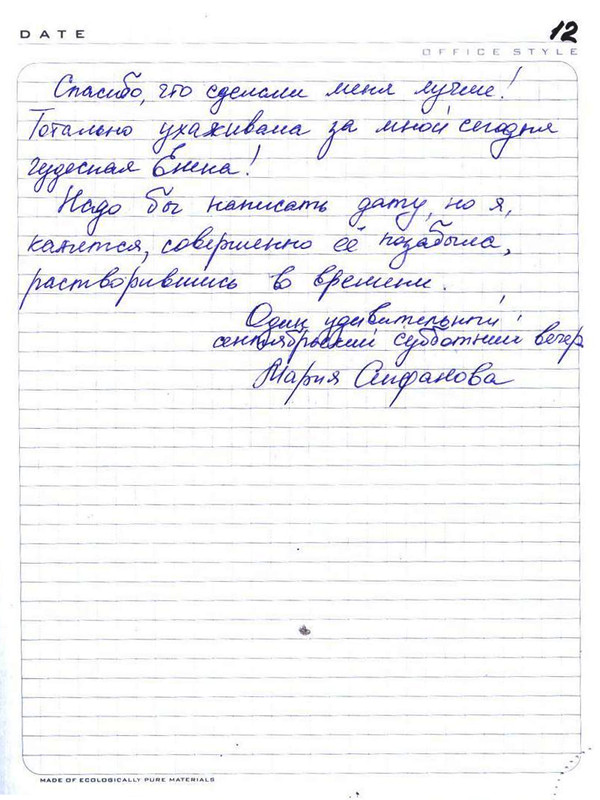 DATE
12
OFFICE STYLE
Спасибо, что сделали меня лучше!
Тотально ухаживала за мной сегодня
чудесная Елена!
Надо бы написать дату, но я,
кажется, совершенно её позабыла,
растворившись во времени.
Один удивительный
сентябрьский субботний вечер
Мария
MADE OF ECOLOGICALLY PURE MATERIALS